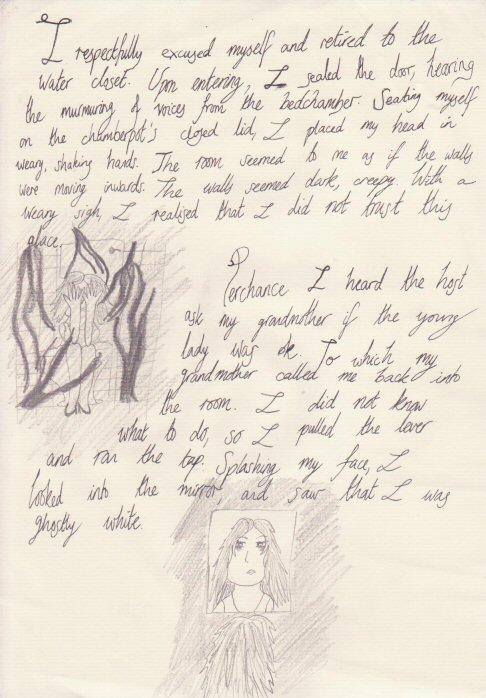 I respectfully excused myself and retired to the
water closet. Upon entering, I sealed the door, hearing
the murmuring of voices from the bedchamber. Seating myself
on the chamberpot's closed lid, I placed my head in
weary, shaking hands. The room seemed to me as if the walls
were moving inwards. The walls seemed dark, creepy. With a
weary sigh, I realised that I did not trust this
place.
Perchance I heard the host
ask my grandmother if the young
lady was ok. To which my
grandmother called me back into
the room. I did not know
what to do, so I pulled the lever
and ran the tap. Splashing my face, I
looked into the mirror and saw that I was
ghostly white.